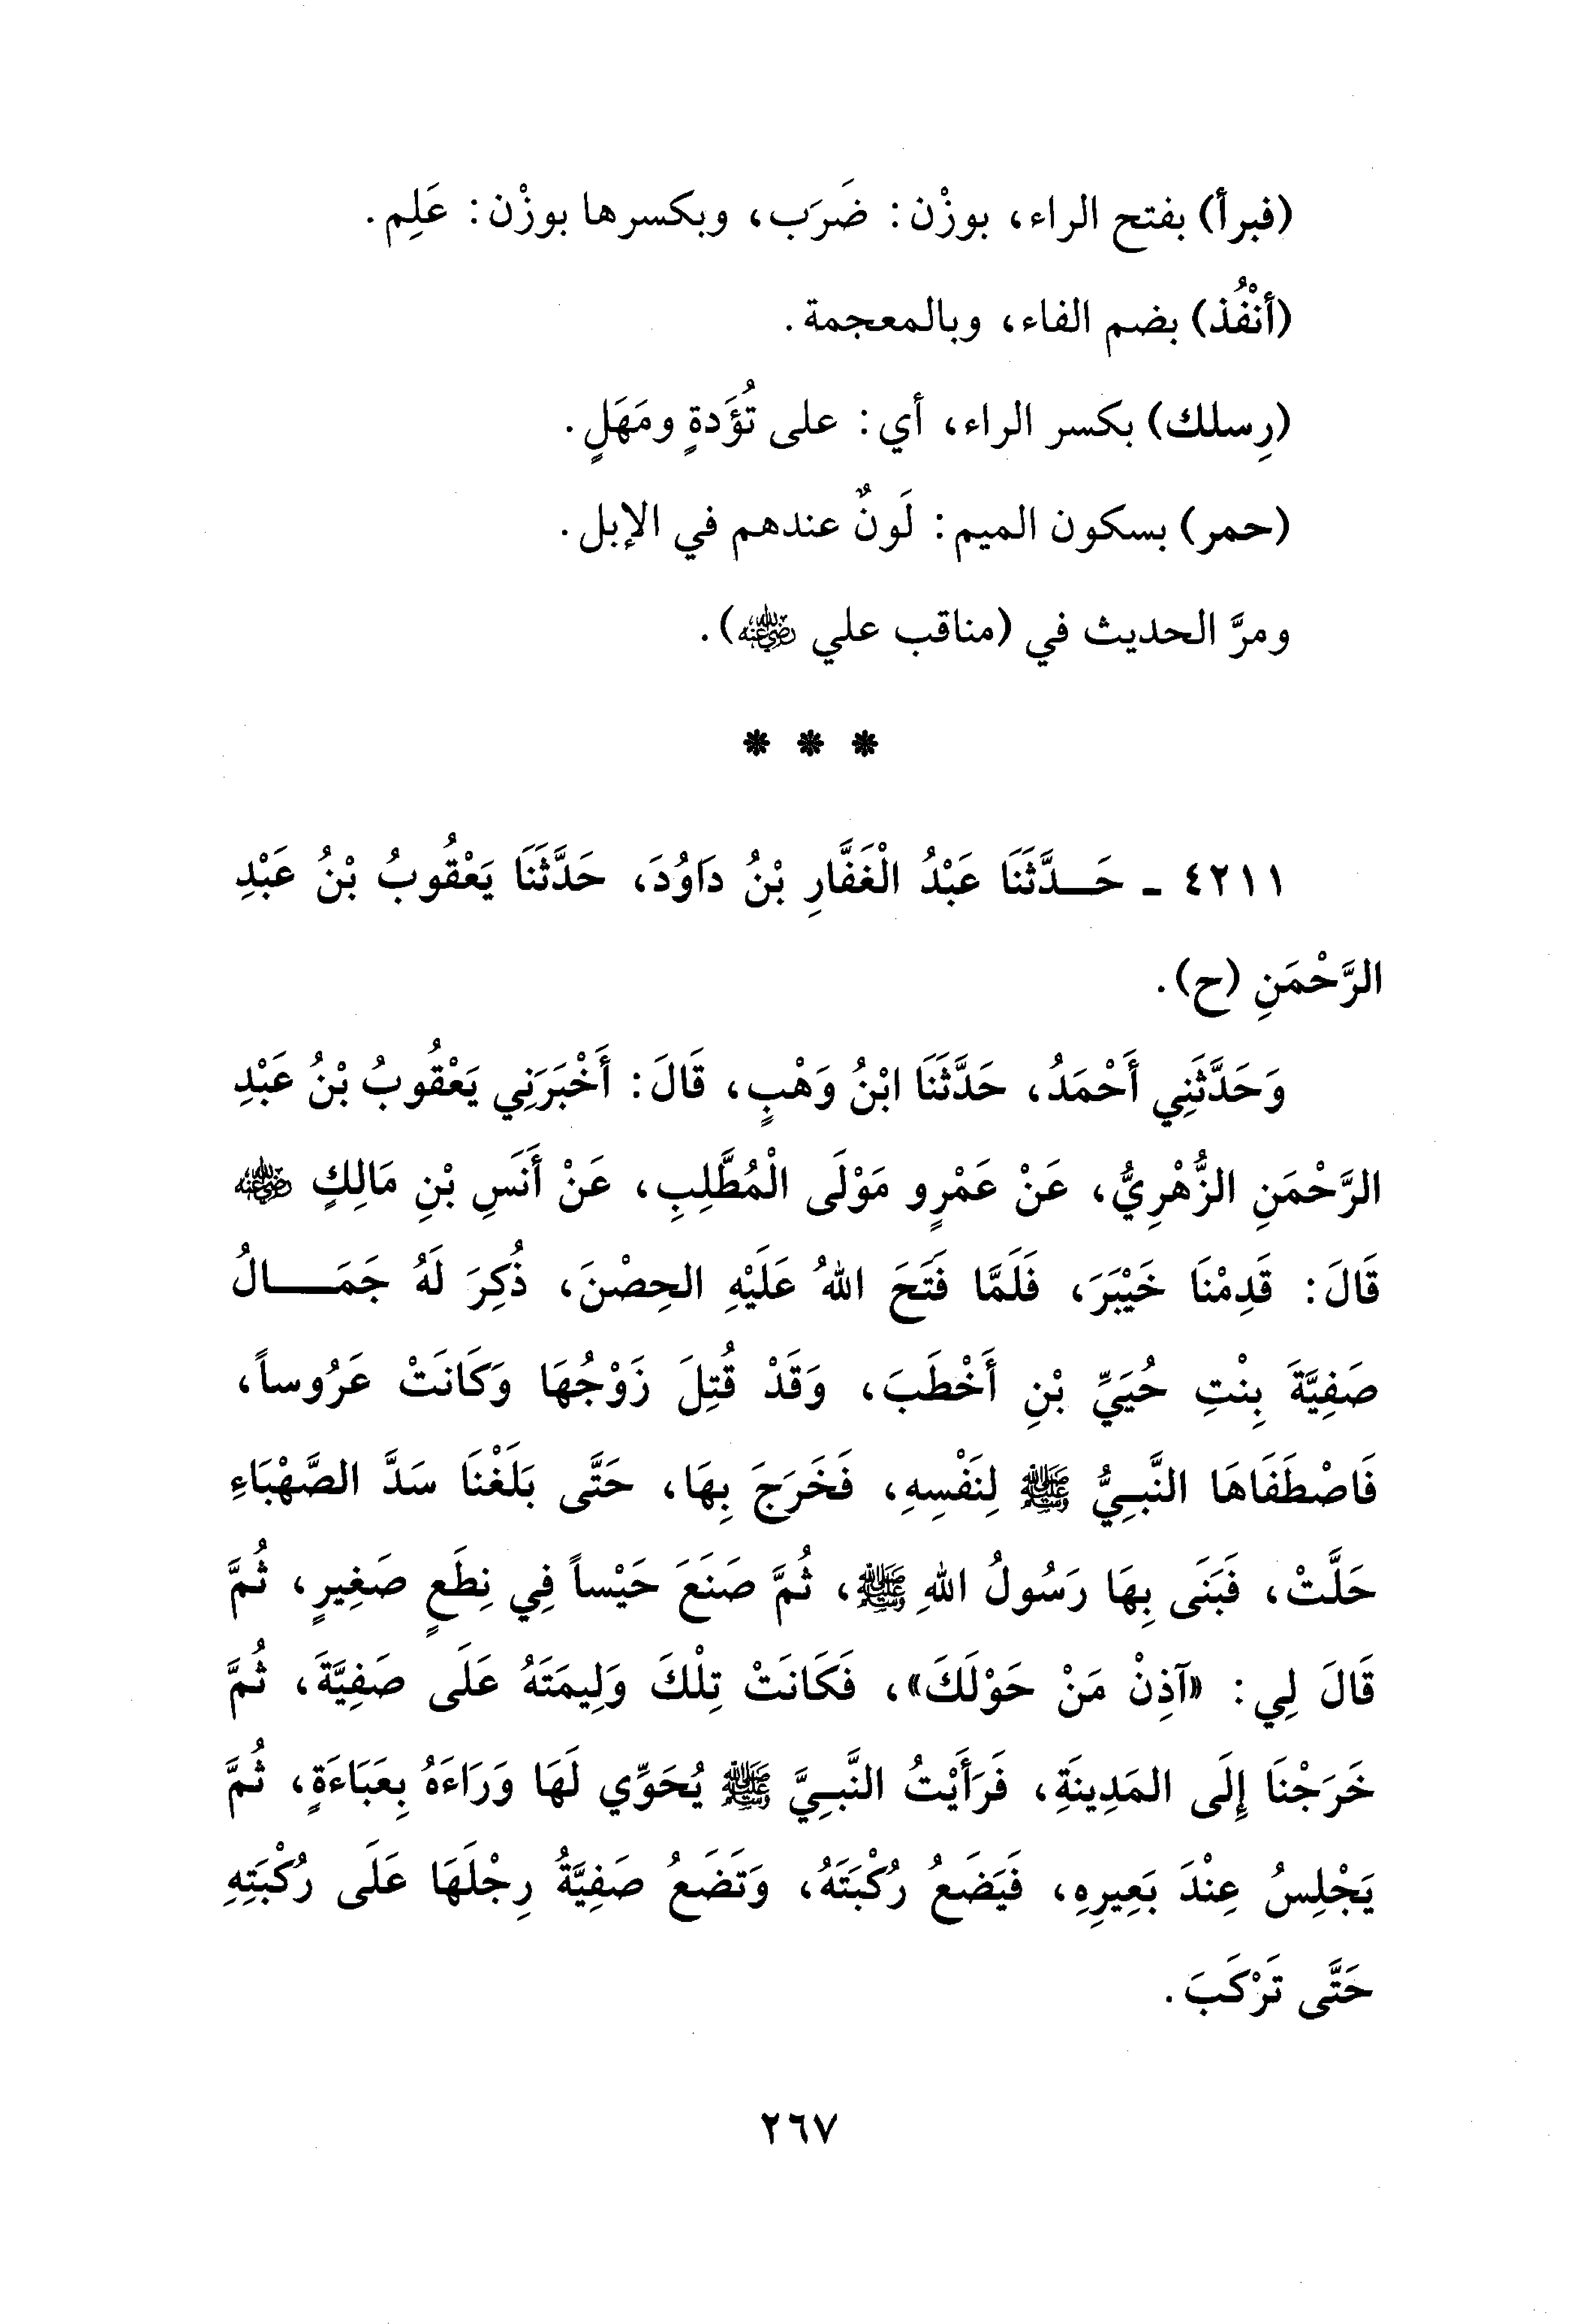 (فبرأ) بفتح الراء، بوزْن: ضَرَب، وبكسرها بوزْن: عَلِم.
(أنْفُذ) بضم الفاء، وبالمعجمة.
(رِسلك) بكسر الراء، أي: على تُؤَدةٍ ومَهَلٍ.
(حمر) بسكون الميم: لَونٌ عندهم في الإبل.
ومرَّ الحديث في (مناقب علي رضي الله عنه).
* * *
٤٢١١ ـ حَـدَّثَنَا عَبْدُ الْغَفَّارِ بْنُ دَاوُدَ، حَدَّثَنَا يَعْقُوبُ بْنُ عَبْدِ
الرَّحْمَنِ (ح).
وَحَدَّثَنِي أَحْمَدُ، حَدَّثَنَا ابْنُ وَهْبٍ، قَالَ: أَخْبَرَنِي يَعْقُوبُ بْنُ عَبْدِ
الرَّحْمَنِ الزُّهْرِيُّ، عَنْ عَمْرٍو مَوْلَى الْمُطَّلِبِ، عَنْ أَنَسِ بْنِ مَالِكٍ رضي الله عنه
قَالَ: قَدِمْنَا خَيْبَرَ، فَلَمَّا فَتَحَ اللهُ عَلَيْهِ الحِصْنَ، ذُكِرَ لَهُ جَمَــالُ
صَفِيَّةَ بِنْتِ حُيَيِّ بْنِ أَخْطَبَ، وَقَدْ قُتِلَ زَوْجُهَا وَكَانَتْ عَرُوساً،
فَاصْطَفَاهَا النَّبِيُّ ﷺ لِنَفْسِهِ، فَخَرَجَ بِهَا، حَتَّى بَلَغْنَا سَدَّ الصَّهْبَاءِ
حَلَّتْ، فَبَنَى بِهَا رَسُولُ اللهِ ﷺ، ثُمَّ صَنَعَ حَيْساً فِي نِطَعٍ صَغِيرٍ، ثُمَّ
قَالَ لِي: «آذِنْ مَنْ حَوْلَكَ»، فَكَانَتْ تِلْكَ وَلِيمَتَهُ عَلَى صَفِيَّةَ، ثُمَّ
خَرَجْنَا إِلَى المَدِينَةِ، فَرَأَيْتُ النَّبِيَّ ﷺ يُحَوِّي لَهَا وَرَاءَهُ بِعَبَاءَةٍ، ثُمَّ
يَجْلِسُ عِنْدَ بَعِيرِهِ، فَيَضَعُ رُكْبَتَهُ، وَتَضَعُ صَفِيَّةُ رِجْلَهَا عَلَى رُكْبَتِهِ
حَتَّى تَرْكَبَ.
٢٦٧